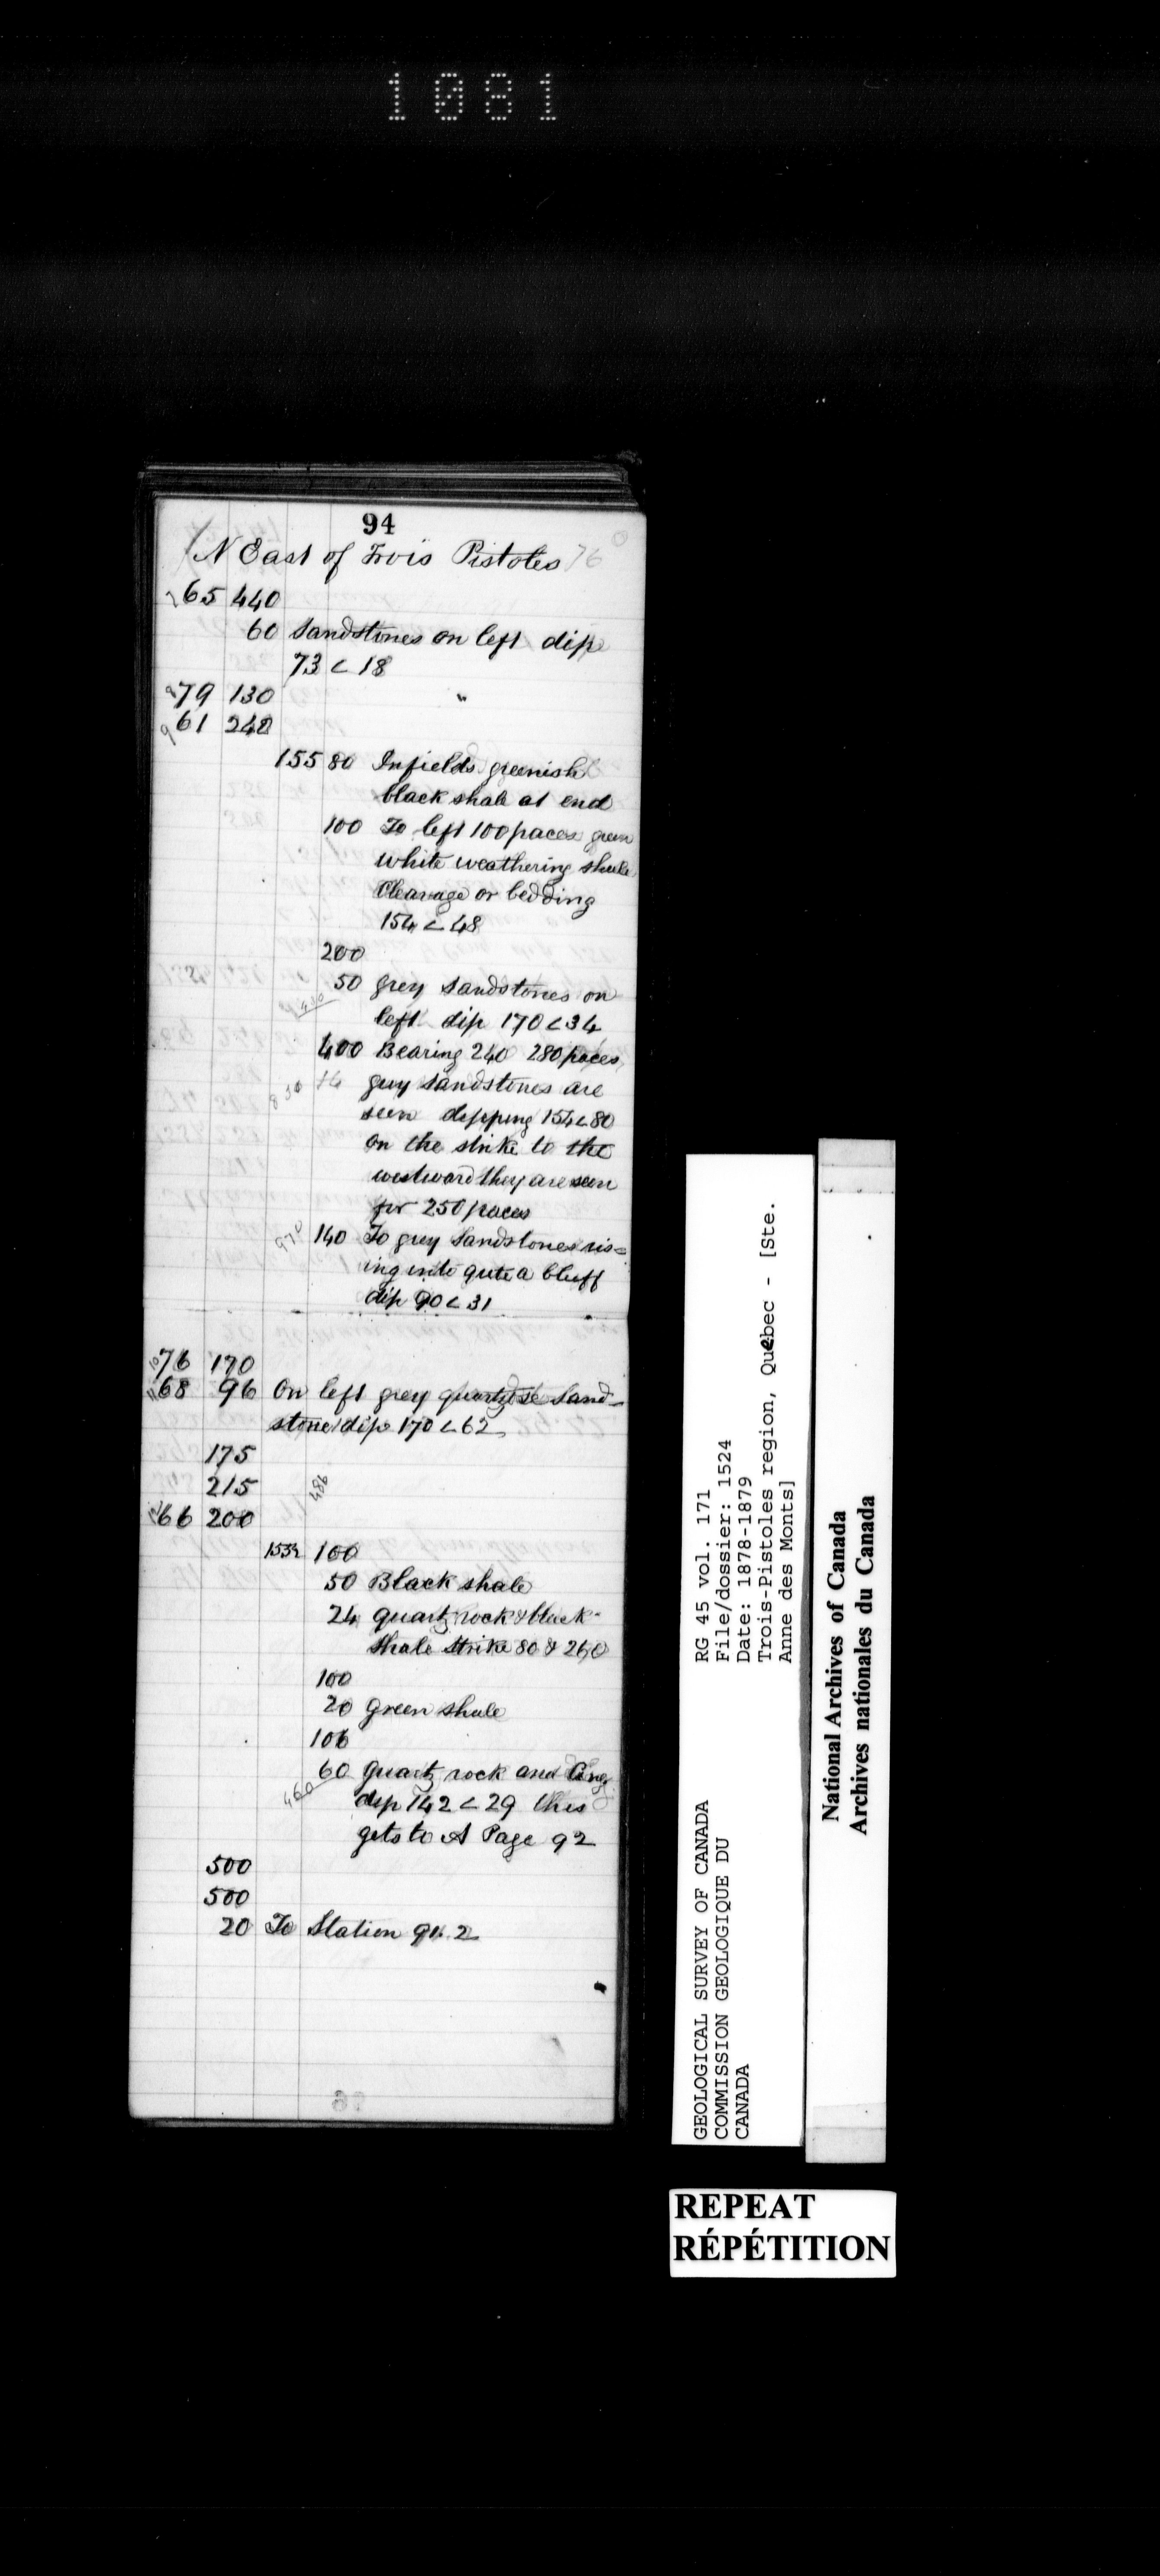 1081
94
N East of Trois Pistoles 76
7 65 440
60 Sandstones on left dip
73 < 18
8 79 130 "
9 61 240
155 80 In fields greenish
black shale at end
100 To left 100 paces green
white weathering shale
Cleavage or bedding
154 < 48
200
50 grey sandstones on
430
left dip 170 < 34
400 Bearing 240 280 paces
830 grey sandstones are
seen dipping 154 < 80
on the strike to the
westward they are seen
for 250 paces
970 140 To grey Sandstones ris=
ing into quite a bluff
dip 90 < 31
10 76 170
11 68 96 On left grey quartzose Sand-
stone dip 170 < 62
175
215
486
12 66 200
153½ 100
50 Black shale
24 quartz rock & black
shale strike 80 & 260
100
20 green shale
106
60 Quartz rock and Cong
460
dip 142 < 29 this
gets to A Page 92
500
500
20 To Station 91. 2
GEOLOGICAL SURVEY OF CANADA
COMMISSION GEOLOGIQUE DU
CANADA
RG 45 vol. 171
File/dossier: 1524
Date: 1878-1879
Trois-Pistoles region, Québec - [Ste.
Anne des Monts]
National Archives of Canada
Archives nationales du Canada
REPEAT
RÉPÉTITION